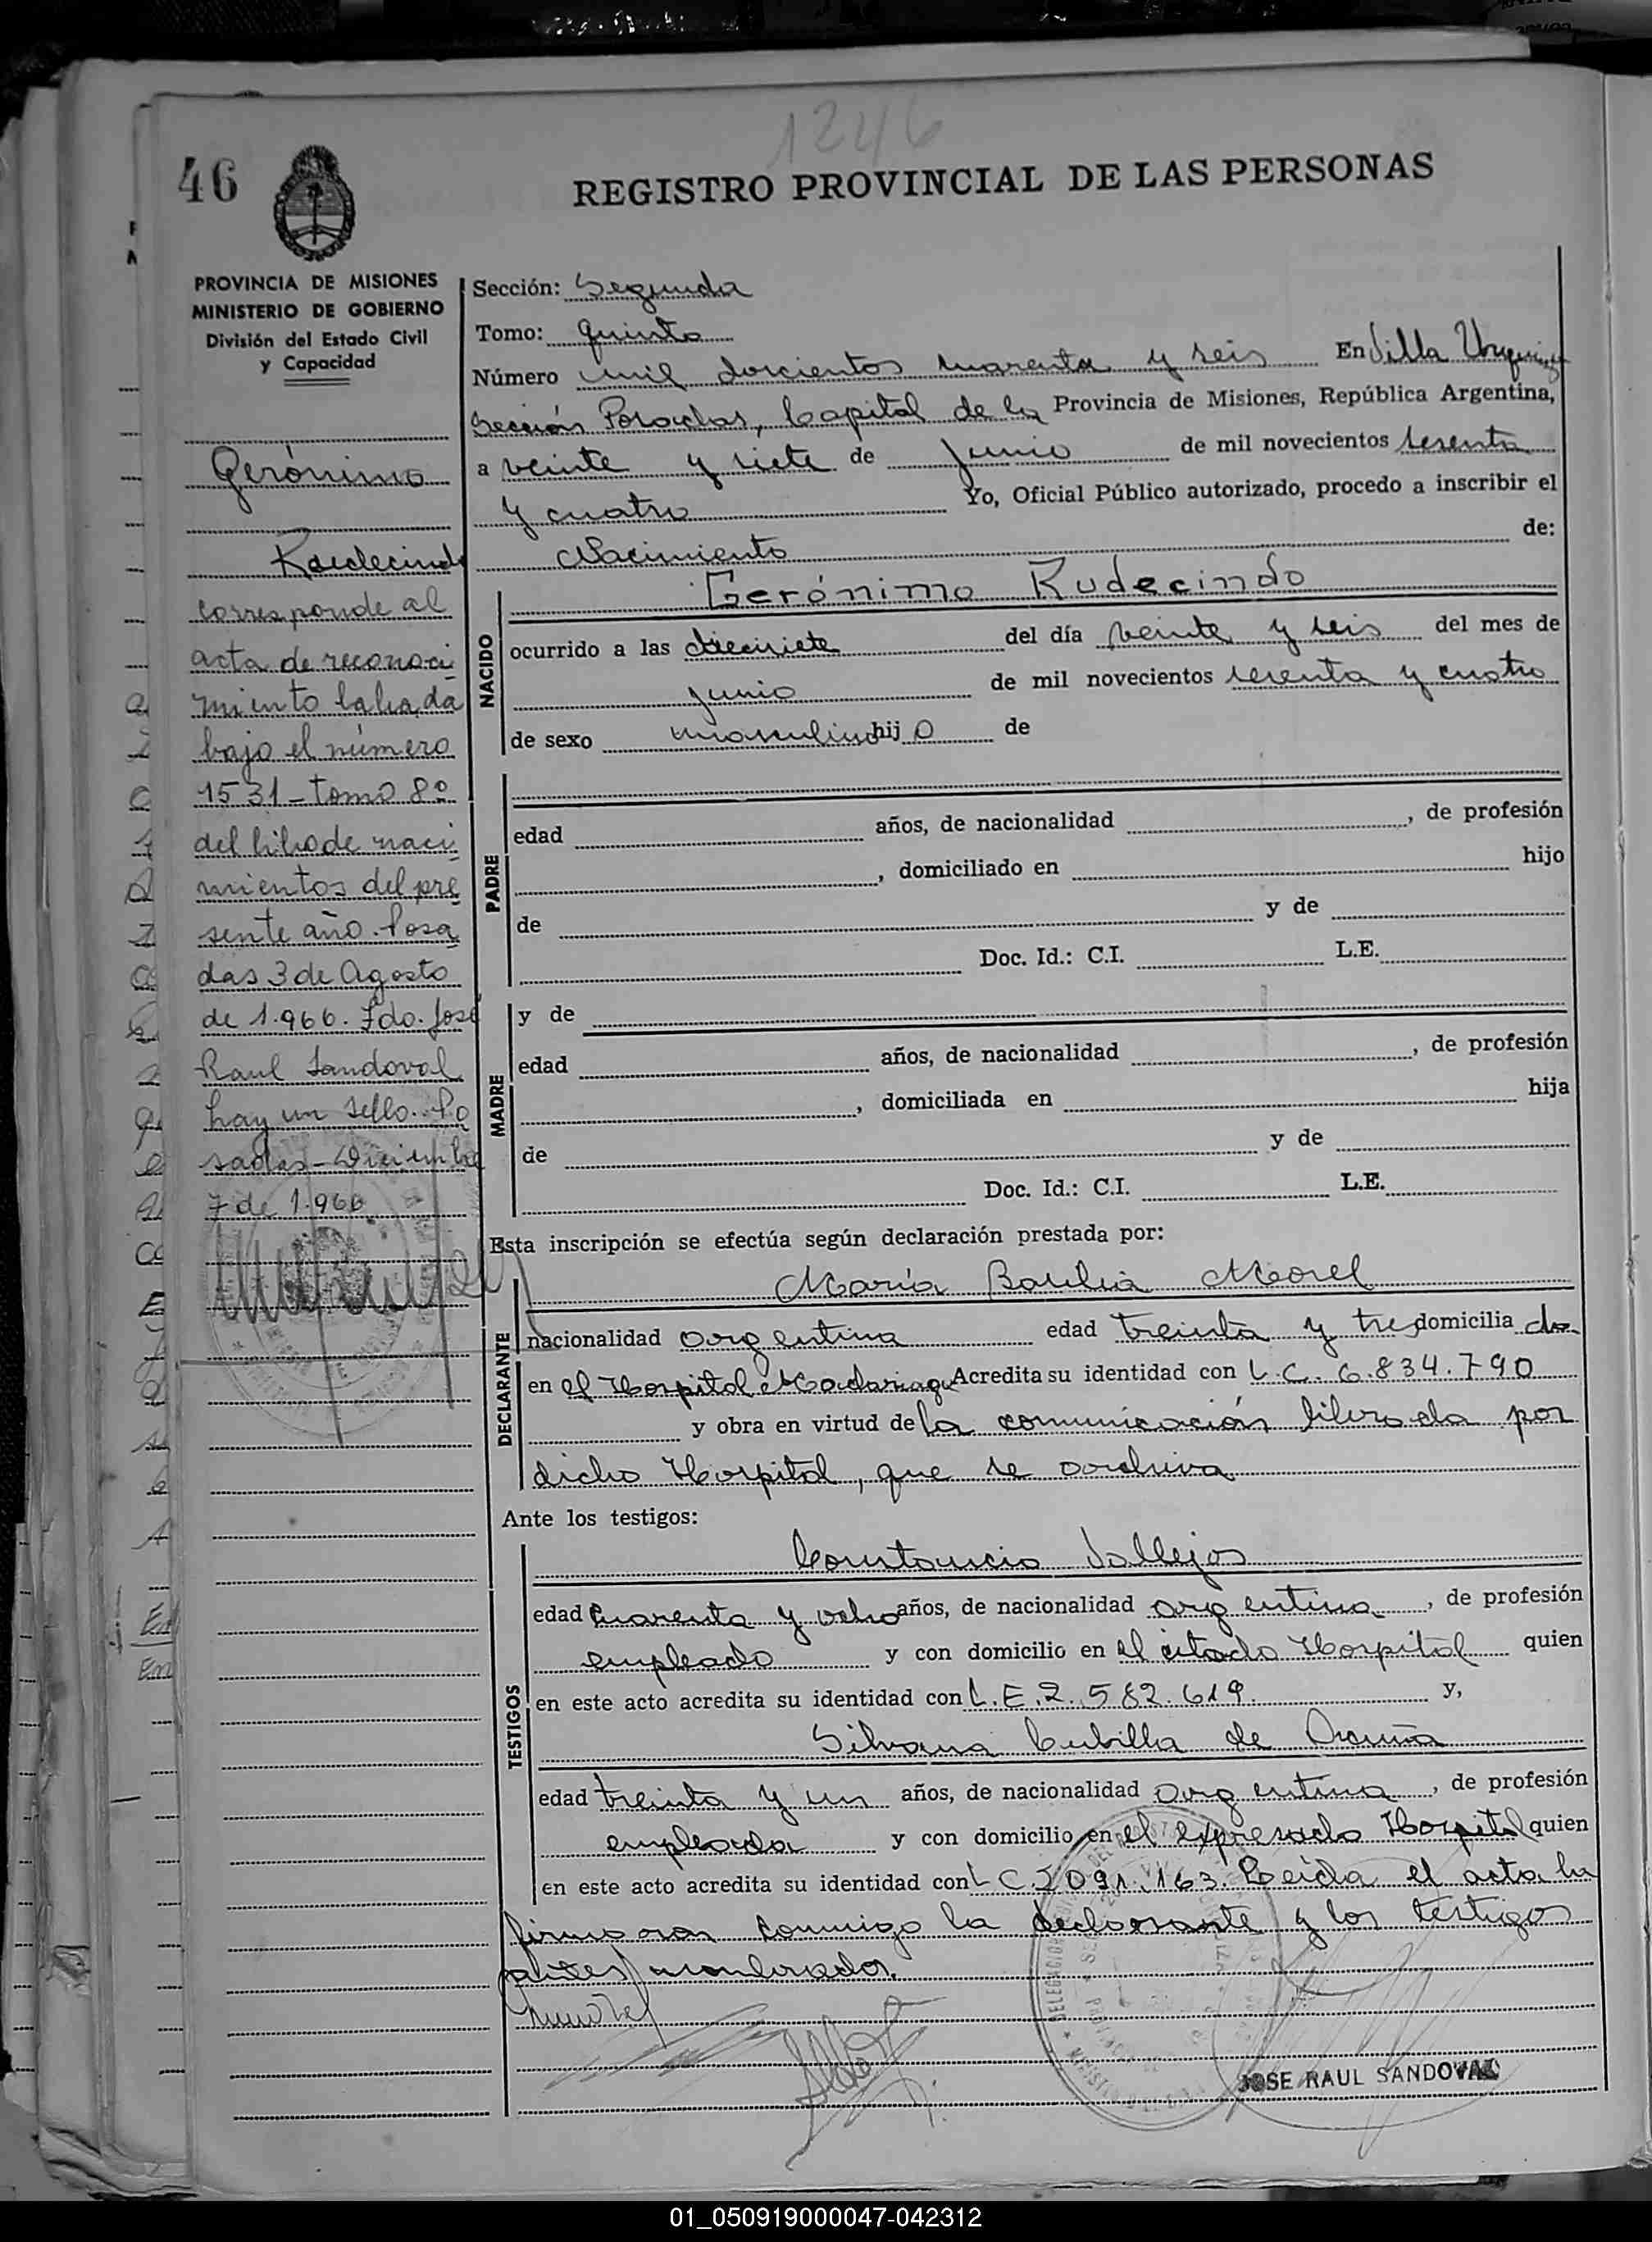 1246
46
REGISTRO PROVINCIAL DE LAS PERSONAS
PROVINCIA DE MISIONES
MINISTERIO DE GOBIERNO
División del Estado Civil
y Capacidad
Gerónimo
Rudecindo
corresponde al
acta de reconoci
miento labrada
bajo el número
1531 - tomo 8º
del libro de naci
mientos del pre
sente año. Posa
das 3 de Agosto
de 1.966. Fdo. José
Raul Sandoval
hay un sello. Po
sadas - Diciembre
7 de 1.966
Sección: Segunda
Tomo: quinto
Número mil doscientos cuarenta y seis En Villa Urquiza
Sección Posadas, Capital de la Provincia de Misiones, República Argentina,
a veinte y siete de junio de mil novecientos sesenta
y cuatro Yo, Oficial Público autorizado, procedo a inscribir el
Nacimiento de:
NACIDO
Gerónimo Rudecindo
ocurrido a las diecisiete del día veinte y seis del mes de
junio de mil novecientos sesenta y cuatro
de sexo masculino hij o de
PADRE
edad años, de nacionalidad , de profesión
, domiciliado en hijo
de y de
Doc. Id.: C.I. L.E.
MADRE
y de
edad años, de nacionalidad , de profesión
, domiciliada en hija
de y de
Doc. Id.: C.I. L.E.
Esta inscripción se efectúa según declaración prestada por:
DECLARANTE
María Morel
nacionalidad argentina edad treinta y tres domicilia da
en el Hospital Madariaga Acredita su identidad con L.C. 6.834.790
y obra en virtud de la comunicación librada por
dicho Hospital, que se archiva
Ante los testigos:
TESTIGOS
Constancio Vallejos
edad cuarenta y ocho años, de nacionalidad argentina , de profesión
empleado y con domicilio en el citado Hospital quien
en este acto acredita su identidad con L.E. 2.582.619. y,
Silvana Cubilla de Acuña
edad treinta y un años, de nacionalidad argentina , de profesión
empleada y con domicilio en el expresado Hospital quien
en este acto acredita su identidad con L.C. 2.091.163. Leída el acta la
firmaron conmigo la declarante y los testigos
antes nombrados.
JOSE RAUL SANDOVAL
01_050919000047-042312